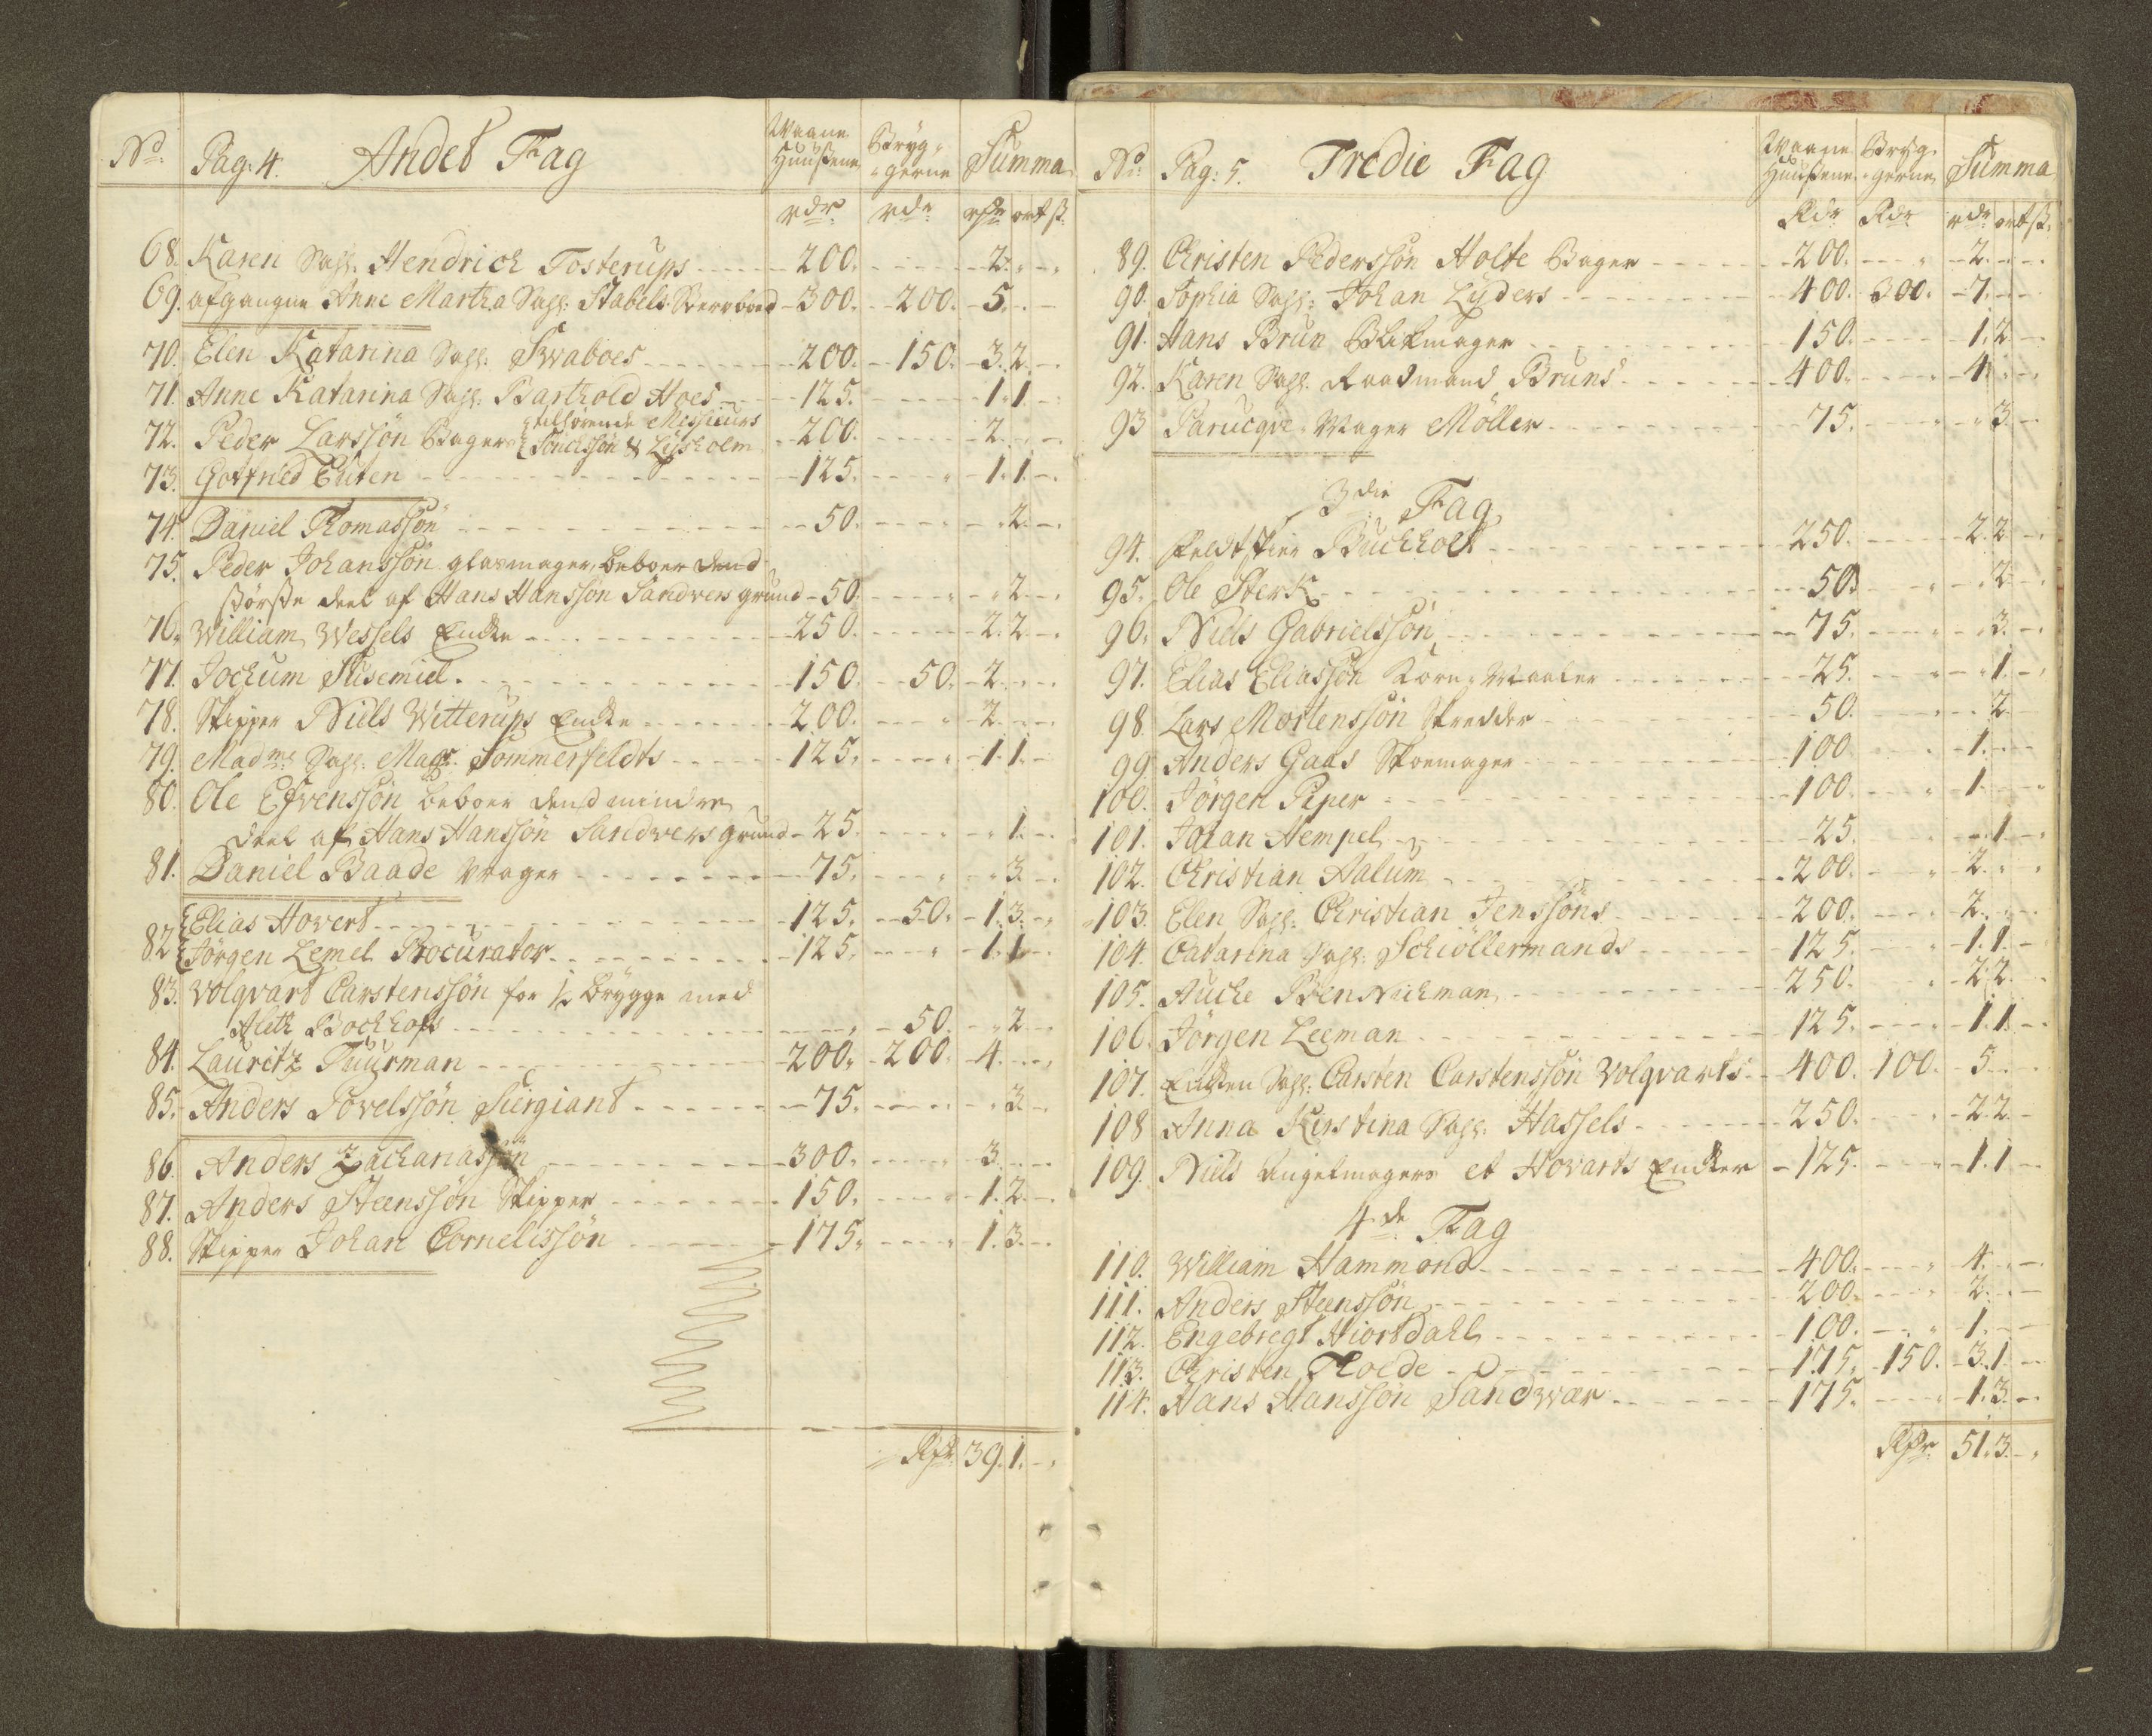 No: Pag: 4. Andet Fag Waane Huußene Bryg-gerne Summa
rdr rdr rdr ort ß.
68. Karen Sal: Hendrich Tosterups 200. 2.
69. afgangne Anne Martha Sal: Stabels 300. 200. 5.
70. Elen Katarina Sal: Swaboes 200. 150. 3. 2.
71. Anne Katarina Sal: Barthold Hoes 125. 1. 1.
tilhørende Messieurs
72. Peder Larssön Bager & Lysholm 200. 2.
73. Gotfried 125. 1. 1.
74. Daniel Thomassön 50. 2.
75. Peder Johanssön glasmager, beboer dend
störste deel af Hans Hanssön Sandvers grund 50. 2.
76. William Wessels Encke 250. 2. 2.
77. Jochum 150. 50. 2.
78. Skipper Niels Witterups Encke 200. 2.
79. Madme Sal: Mag: Sommerfeldts 125. 1. 1.
80. Ole beboer dend mindre
deel af Hans Hanssön Sandvers grund 25. 1.
81. Daniel Baade Wrager 75. 3.
82. Elias Hovert 125. 50. 1. 3.
Jörgen Lemel Procurator 125. 1. 1.
83. Volqvart Carstenssön for 1/2 brygge med
Aleth Bochhofs 50. 2.
84. Lauritz Tuurman 200. 200. 4.
85. Anders Povelssön Siergiant 75. 3.
86. Anders Zachariassön 300. 3.
87. Anders Steenssön Skipper 150. 1. 2.
88. Skipper Johan Cornelissön 175. 1. 3.
Rdr 39. 1.
No: Pag: 5. Tredie Fag Waane Huußene Bryg-gerne Summa
Rdr Rdr rdr ort ß.
89. Christen Pederssön Holte Bager 200. 2.
90. Sophia Sal: Johan Lyders 400. 300. 7.
91. Hans Brun Blikmager 150. 1. 2.
92. Karen Sal: Raadmand Bruns 400. 4.
93 Parucqve-Mager Möller 75. 3.
3die Fag
94. Buchholt 250. 2. 2.
95. Ole Sterk 50. 2.
96. Niels Gabrielssön 75. 3.
97. Elias Eliassön Korn-Maaler 25. 1.
98 Lars Mortenssön Skredder 50. 2.
99 Anders Gaas Skoemager 100. 1.
100. Jörgen Piper 100. 1.
101. Johan Hempel 25. 1.
102. Christian Aalum 200. 2.
103. Elen Sal: Christian Jenssöns 200. 2.
104. Catarina Sal: Schiöllermands 125. 1. 1.
105. Auche 250. 2. 2.
106. Jörgen Leeman 125. 1. 1.
107. Encken Sal: Carsten Carstenssön Volqvarts 400. 100. 5.
108 Anna Kirstina Sal: Hassels 250. 2. 2.
109. Niels et Hovarts Encker 125. 1. 1.
4de Fag
110. William Hammond 400. 4.
111. Anders Steenssön 200. 2.
112. Engebregt Hiortdahl 100. 1.
113. Christen Floede 175. 150. 3. 1.
114. Hans Hanssön Sandwær 175. 1. 3.
Rdr 51. 3.